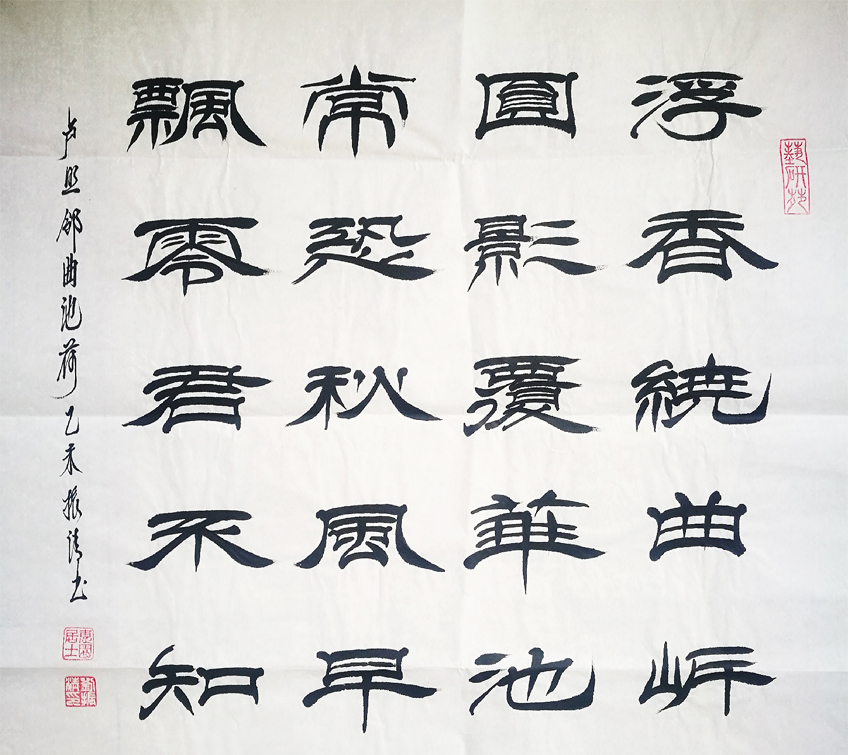 藝研苑
浮香繞曲岸
圓影覆華池
常恐秋風早
飄零君不知
卢照邻曲池荷乙未振清书